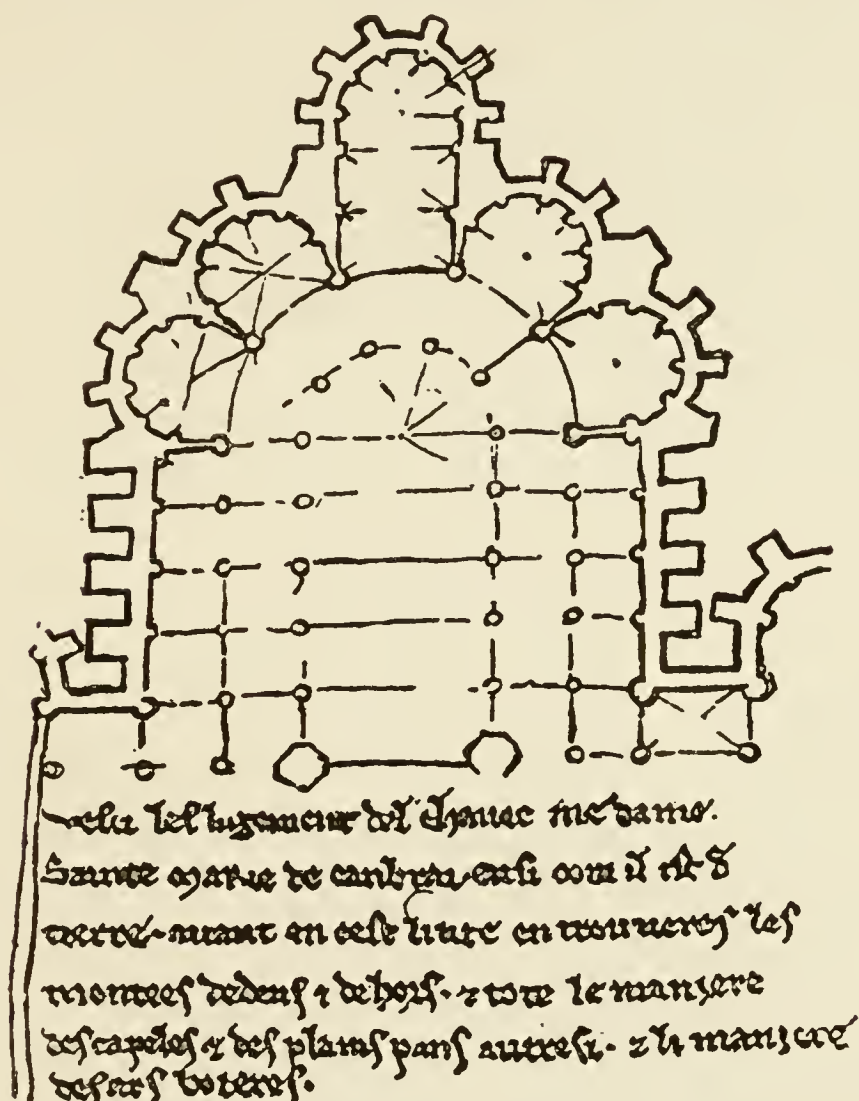 Vesci lesligement del chavec me dame.
Sainte marie de canbrai ensi com il ist d
tierre. avant en cest livre en trouveres les
montees dedens ⁊ dehors. ⁊ tote le maniere
des capeles ⁊ des plains pans autresi. ⁊ li maniere
des ars boteres.